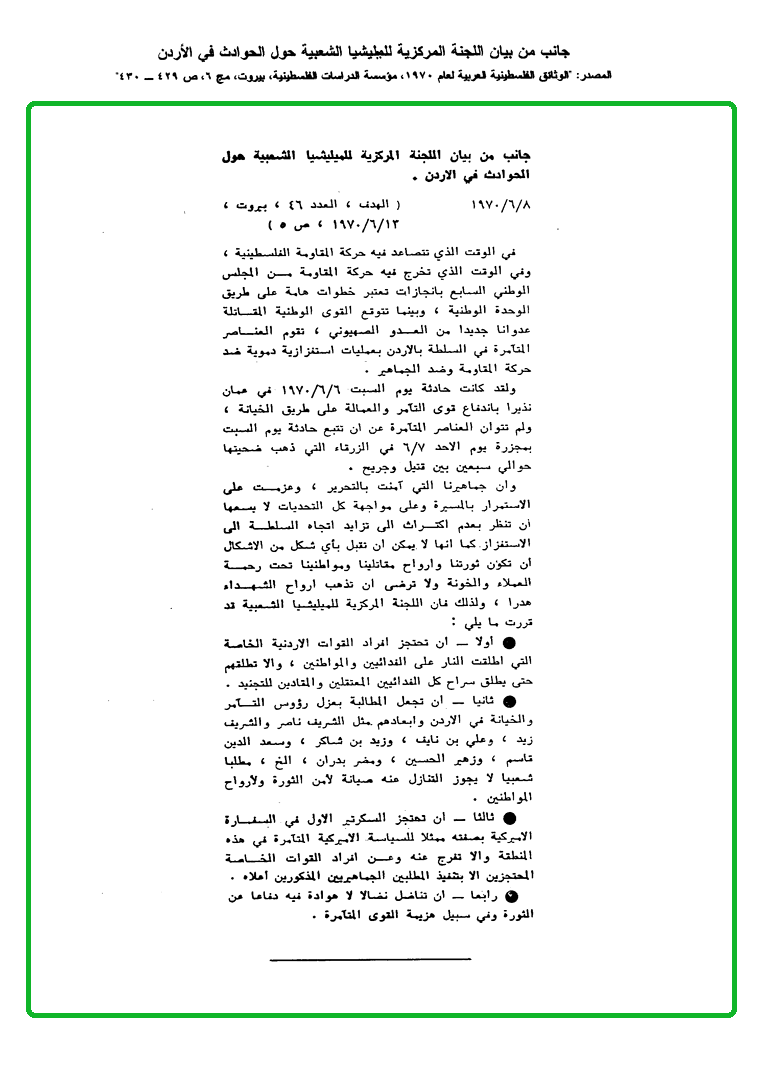 جانب من بيان اللجنة المركزية للميليشيا الشعبية حول الحوادث في الأردن
المصدر: "الوثائق الفلسطينية العربية لعام ١٩٧٠، مؤسسة الدراسات الفلسطينية، بيروت، مج ٦، ص ٤٢٩ – ٤٣٠"
جانب من بيان اللجنة المركزية للميليشيا الشعبية حول
الحوادث في الاردن .
١٩٧٠/٦/٨ ( الهدف ، العدد ٤٦ ، بيروت ،
١٩٧٠/٦/١٣ ، ص ٥ )
في الوقت الذي تتصاعد فيه حركة المقاومة الفلسطينية ،
وفي الوقت الذي تخرج فيه حركة المقاومة مــن المجلس
الوطني السابع بانجازات تعتبر خطوات هامة على طريق
الوحدة الوطنية ، وبينما تتوقع القوى الوطنية المقــاتلة
عدوانا جديدا من العــدو الصهيوني ، تقوم العنــاصر
المتآمرة في السلطة بالاردن بعمليات استفزازية دموية ضد
حركة المقاومة وضد الجماهير .
ولقد كانت حادثة يوم السبت ١٩٧٠/٦/٦ في عمان
نذيرا باندفاع قوى التآمر والعمالة على طريق الخيانة ،
ولم تتوان العناصر المتآمرة عن ان تتبع حادثة يوم السبت
بمجزرة يوم الاحد ٦/٧ في الزرقاء التي ذهب ضحيتها
حوالي سبعين بين قتيل وجريح .
وان جماهيرنا التي آمنت بالتحرير ، وعزمــت على
الاستمرار بالمسيرة وعلى مواجهة كل التحديات لا يسعها
ان تنظر بعدم اكتــراث الى تزايد اتجاه السلطــة الى
الاستفزاز كما انها لا يمكن ان تقبل بأي شكل من الاشكال
ان تكون ثورتنا وارواح مقاتلينا ومواطنينا تحت رحمــة
العملاء والخونة ولا ترضى ان تذهب ارواح الشهــداء
هدرا ، ولذلك فان اللجنة المركزية للميليشيا الشعبية قد
قررت ما يلي :
● أولا — ان تحتجز افراد القوات الاردنية الخاصة
التي اطلقت النار على الفدائيين والمواطنين ، والا تطلقهم
حتى يطلق سراح كل الفدائيين المعتقلين والمقادين للتجنيد .
● ثانيا — ان تجعل المطالبة بعزل رؤوس التــآمر
والخيانة في الاردن وابعادهم مثل الشريف ناصر والشريف
زيد ، وعلي بن نايف ، وزيد بن شاكر ، وسعد الدين
قاسم ، وزهير الحسين ، ومضر بدران ، الخ ، مطلبا
شعبيا لا يجوز التنازل عنه صيانة لأمن الثورة ولأرواح
المواطنين .
● ثالثا — ان تحتجز السكرتير الاول في السفــارة
الاميركية بصفته ممثلا للسياسة الاميركية المتآمرة في هذه
المنطقة والا تفرج عنه وعــن افراد القوات الخــاصة
المحتجزين الا بتنفيذ المطلبين الجماهيريين المذكورين أعلاه .
● رابعا — ان تناضل نضالا لا هوادة فيه دفاعا عن
الثورة وفي سبيل هزيمة القوى المتآمرة .